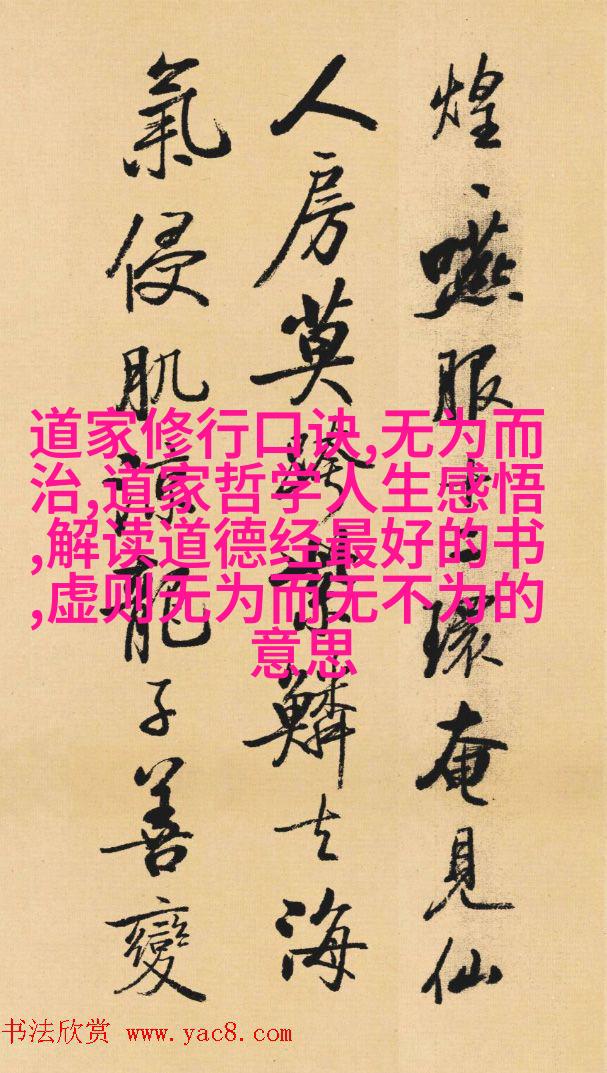 煌、嚥服環奄見仙
人房莫跨鱗去海
氣侵肌龍子善變
道家修行口诀,无为而
治,道家哲学人生感悟
,解读道德经最好的书
,虚则无为而无不为的
意思
书法欣赏 www.yac8.com